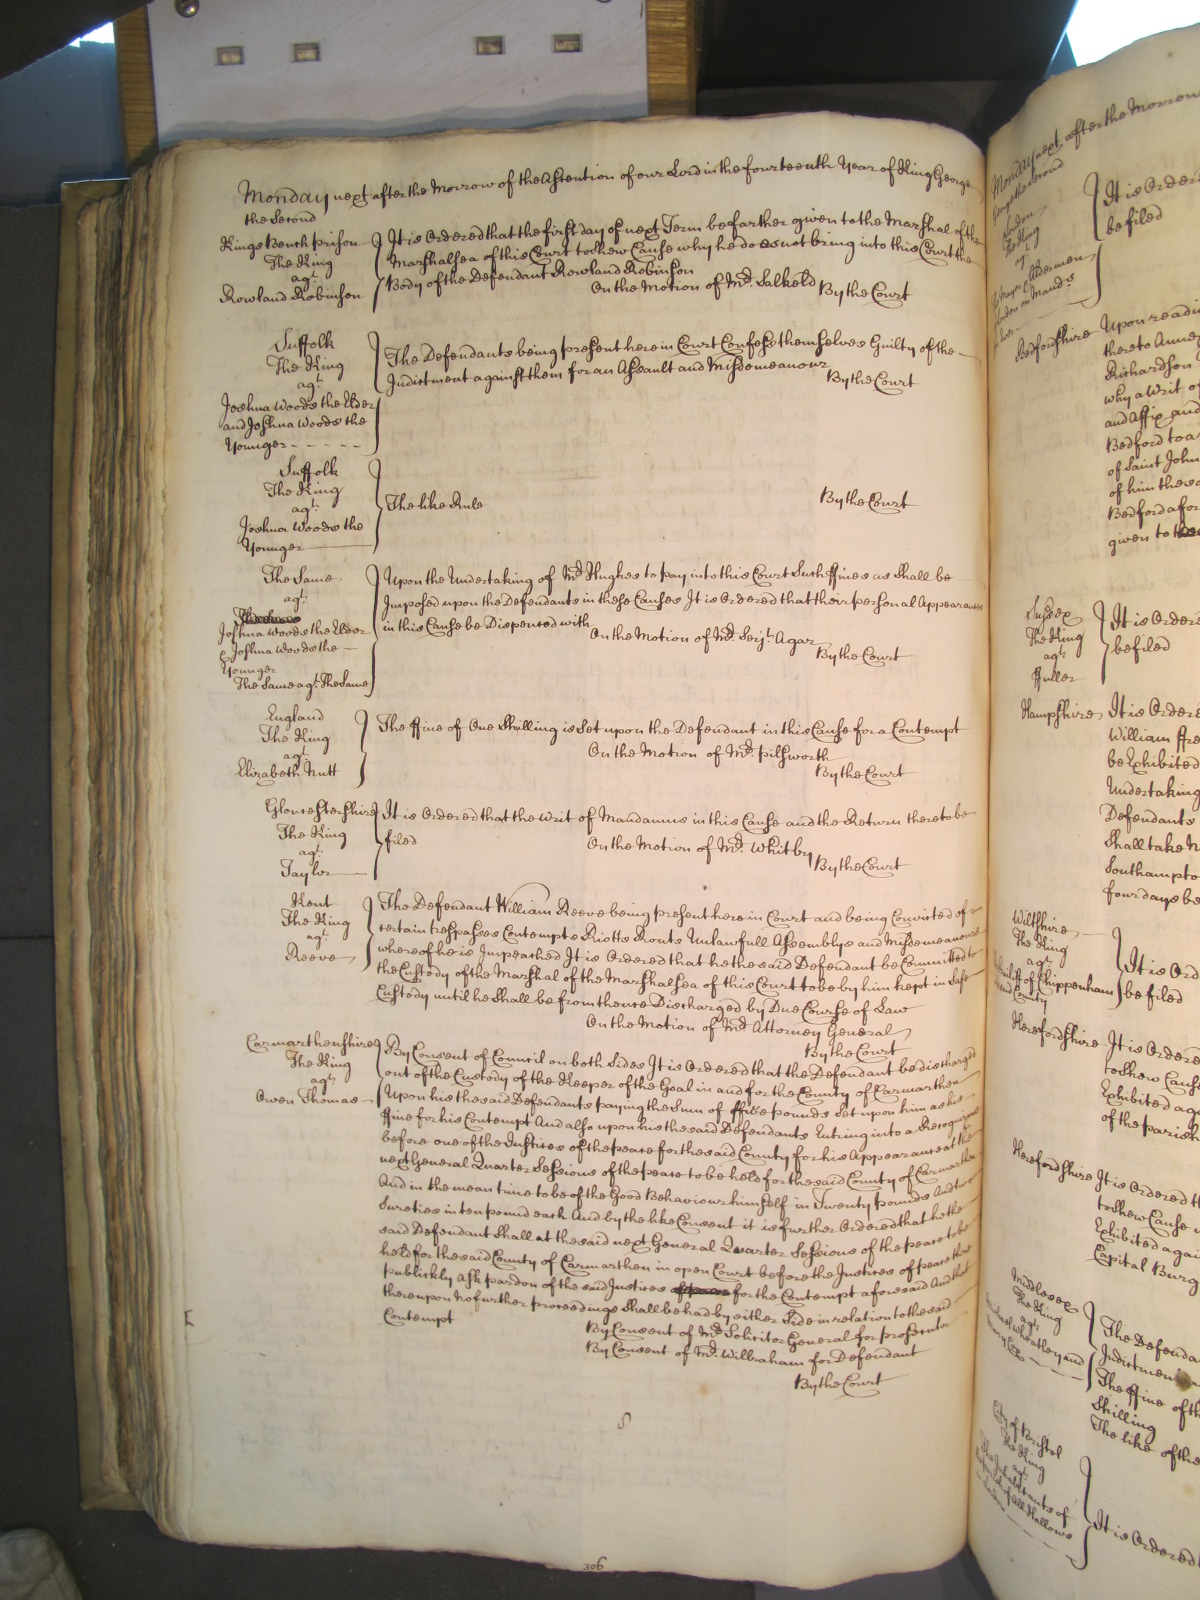 Monday next after the Morrow of the Astention of our Lord in the fourteenth Year of King George
the Second
Kings Bench prison
The King
agt.
Rowland Robinson
It is Ordered that the first day of next Term be farther given to the Marshal of the
Marshalsea of this Court to shew Cause why he does not bring into this Court the
Body of the Defendant Rowland Robinson
On the Motion of Mr. Salkeld
By the Court
Suffolk
The King
agt.
Joshua Woods the Elder
and Joshua Woods the
Younger
The Defendants being present here in Court Confess themselves Guilty of the
Indictment against them for an Assault and Misdemeanour
By the Court
Suffolk
The King
agt.
Joshua Woods the
Younger
The like Rule
By the Court
The Same
agt.
Joshua Woods the Elder
& Joshua Woods the
Younger
The Same agt. The Same
Upon the Undertaking of Mr. Hughes to pay into this Court Such ffines as Shall be
Imposed upon the Defendants in these Causes It is Ordered that their personal Appearance
in this Cause be Dispenced with
On the Motion of Mr. Serjt. Agar
By the Court
England
The King
agt.
Elizabeth Nutt
The ffine of One Shilling is Set upon the Defendant in this Cause for a Contempt
On the Motion of Mr. Pilsworth
By the Court
Gloucestershire
The King
agt.
Taylor
It is Ordered that the Writ of Mandamus in this Cause and the Return thereto be
filed
On the Motion of Mr. Whitby
By the Court
Kent
The King
agt.
Reeve
The Defendant William Reeve being present here in Court and being Convicted of
certain trespasses Contempts Riotts Routs Unlawfull Assemblys and Misdemeanours
whereof he is Impeached It is Ordered that he the said Defendant be Committed to
the Custody of the Marshal of the Marshalsea of this Court to be by him kept in Safe
Custody until he Shall be from thence Discharged by Due Course of Law
On the Motion of Mr. Attorney General
By the Court
Carmarthenshire
The King
agt.
Owen Thomas
By Consent of Council on both Sides It is Ordered that the Defendant be discharged
out of the Custody of the Keeper of the Goal in and for the County of Carmarthen
Upon his the said Defendants paying the Sum of ffive pounds Set upon him as his
ffine for his Contempt And also upon his the said Defendants Entring into a Recognizance
before one of the Justices of the peace for the said County for his Appearance at the
next General Quarter Sessions of the peace to be held for the said County of Carmarthen
And in the mean time to be of the Good Behaviour himself in Twenty pounds And two
Sureties in ten pound each And by the like Consent it is further Ordered that he the
said Defendant Shall at the said next General Quarter Sessions of the peace to be
held for the said County of Carmarthen in open Court before the Justices of peace there
publickly ask pardon of the said Justices for the Contempt aforesaid And that
thereupon no further proceedings Shall be had by either Side in relation to the said
Contempt
By Consent of Mr. Solicitor General for prosecutor
By Consent of Mr. Wilbraham for Defendant
By the Court
306
Monday next after the Morrow
George the Second
London
The King
agt.
It is Ordered
be filed
Bedfordshire
Upon readi
thereto Annex
Richardson
why a Writ of
and Affix and
Bedford to a
of Saint John
of him the sa
Bedford afor
given to
Sussex
The King
agt.
ffuller
It is Ordere
be filed
Hampshire
It is Ordere
William ffre
be Exhibited
Undertaking
Defendants
Shall take N
Southampto
four days be
Wiltshire
The King
agt.
Bailiffs of Chippenham
County
It is Ord
be filed
Herefordshire
It is Ordere
to shew Caus
Exhibited aga
of the parish
Herefordshire
It is Ordered th
to shew Cause
Exhibited again
Capital Burg
Middlesex
The King
agt.
The Defenda
Indictmen
The ffine of th
Shilling
The like of the
City of Bristol
The King
agt.
The Inhabitants of
It is Ordered